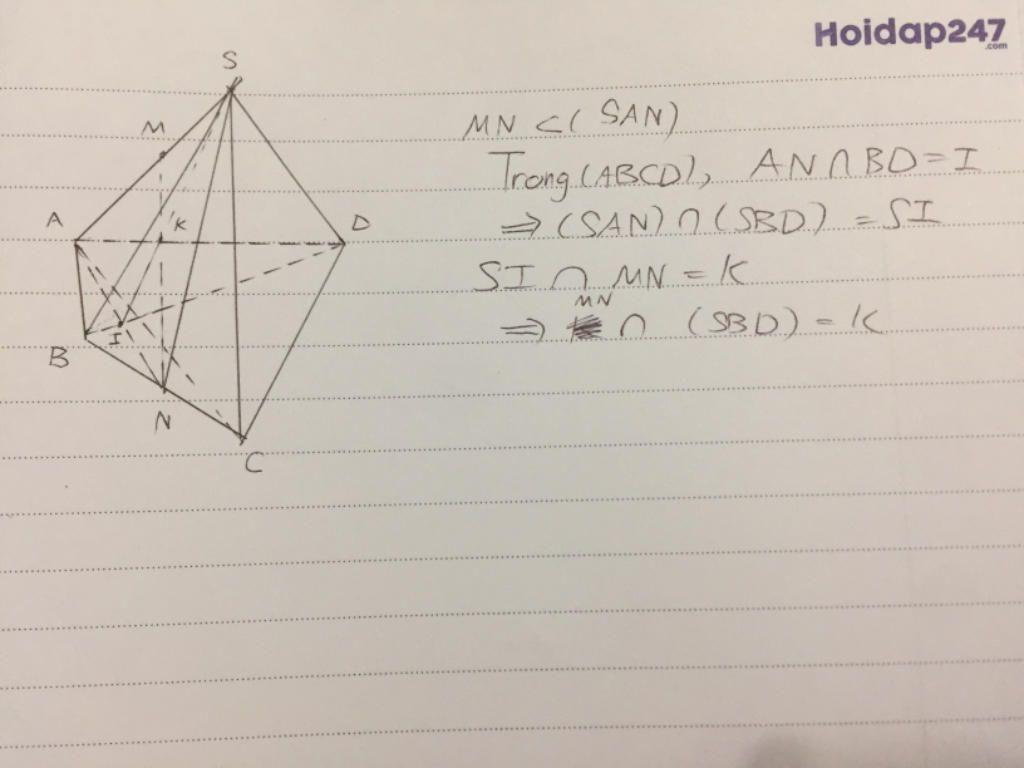 Hoidap247
.com
S
M
A
K
D
B
I
N
C
MN ⊂ (SAN)
Trong (ABCD), AN ∩ BD = I
⇒ (SAN) ∩ (SBD) = SI
SI ∩ MN = K
⇒ MN ∩ (SBD) = K